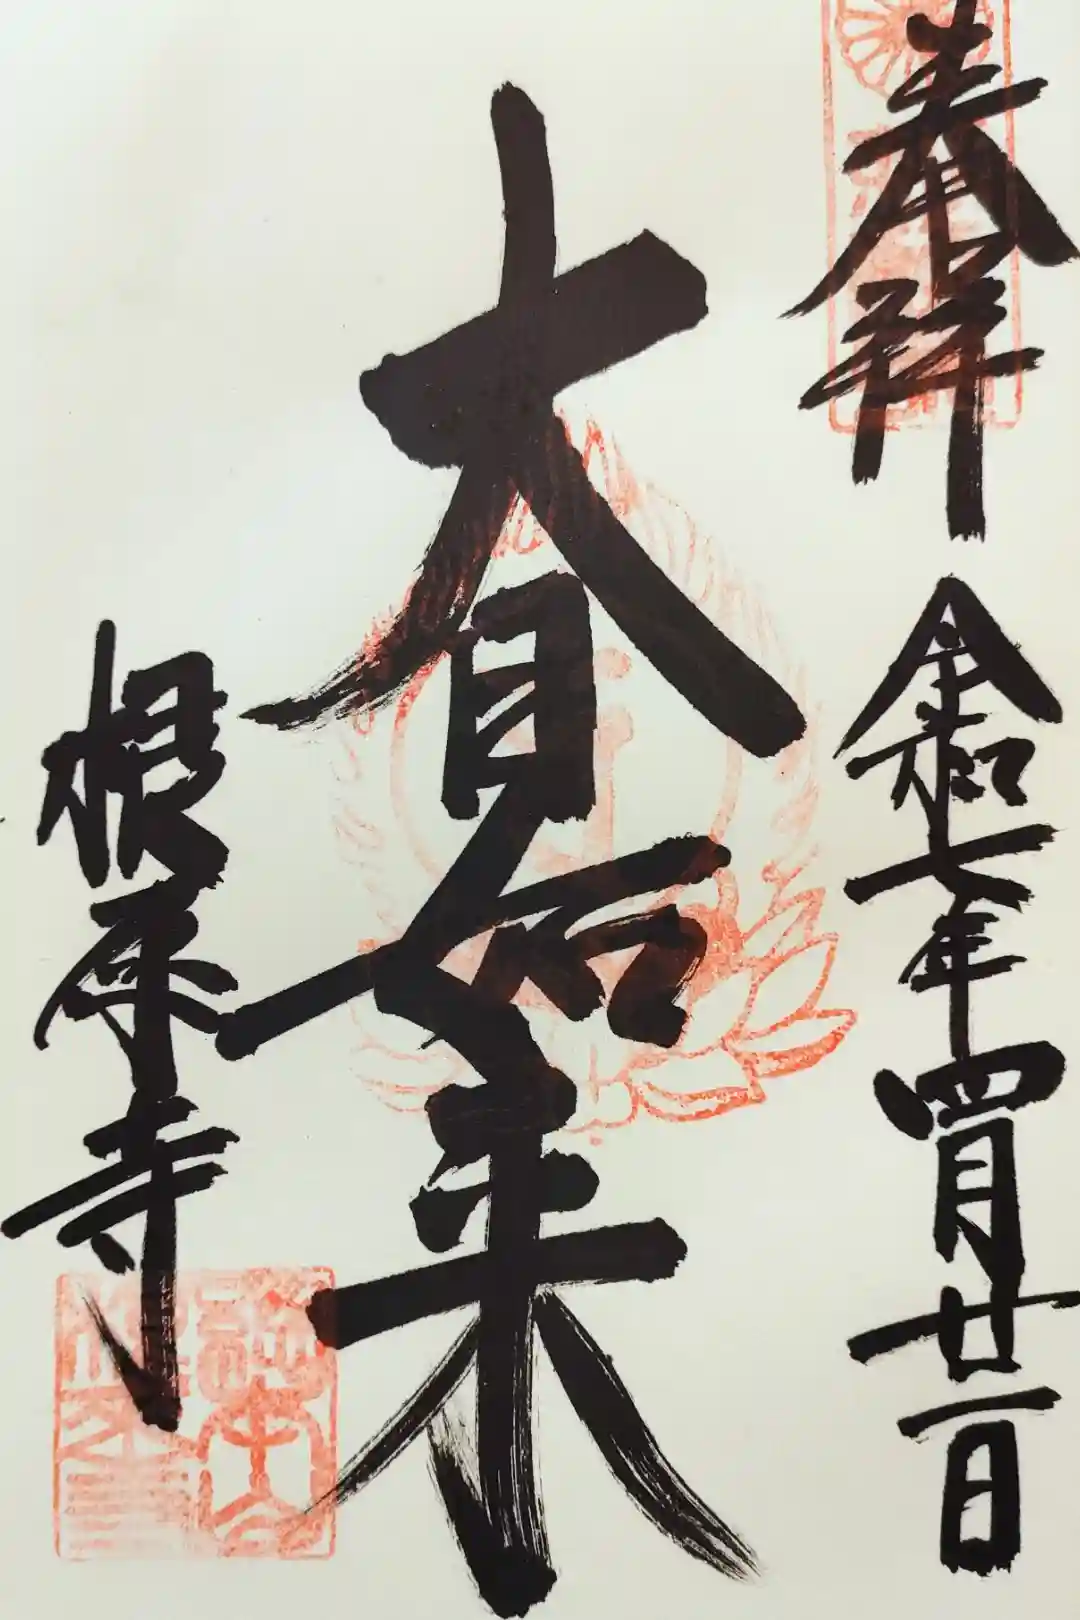 奉拝
令和七年四月廿一日
大日如来
根来寺